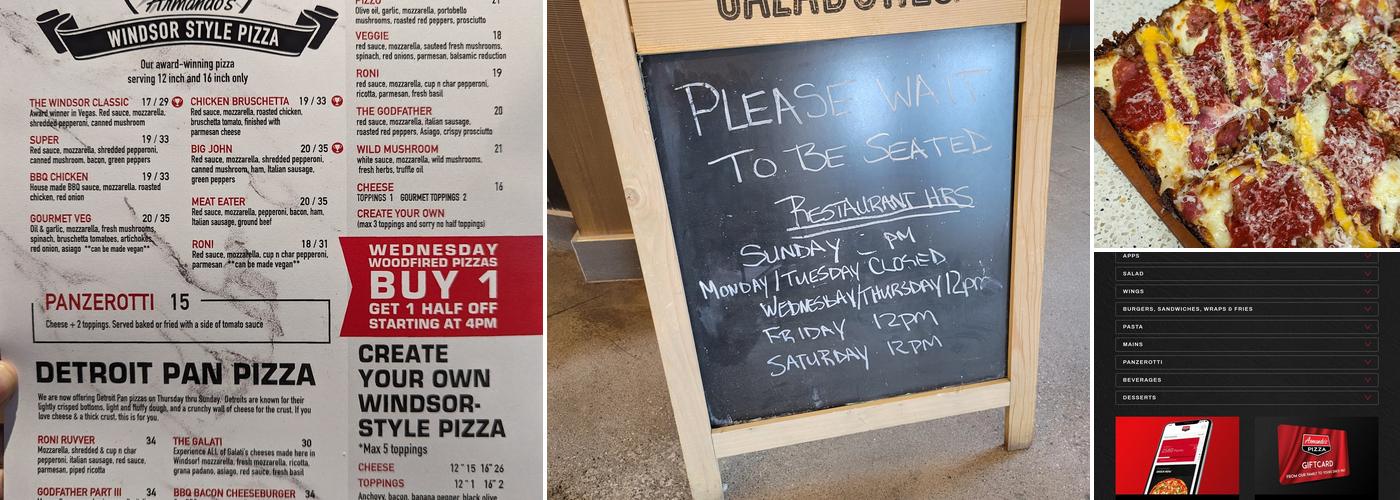 Armando's
WINDSOR STYLE PIZZA
Our award-winning pizza
serving 12 inch and 16 inch only
THE WINDSOR CLASSIC 17 / 29
Award winner in Vegas. Red sauce, mozzarella,
shredded pepperoni, canned mushroom
SUPER 19 / 33
Red sauce, mozzarella, shredded pepperoni,
canned mushroom, bacon, green peppers
BBQ CHICKEN 19 / 33
House made BBQ sauce, mozzarella, roasted
chicken, red onion
GOURMET VEG 20 / 35
Oil & garlic, mozzarella, fresh mushrooms,
spinach, bruschetta tomatoes, artichokes,
red onion, asiago **can be made vegan**
CHICKEN BRUSCHETTA 19 / 33
Red sauce, mozzarella, roasted chicken,
bruschetta tomato, finished with
parmesan cheese
BIG JOHN 20 / 35
Red sauce, mozzarella, shredded pepperoni,
canned mushroom, ham, Italian sausage,
green peppers
MEAT EATER 20 / 35
Red sauce, mozzarella, pepperoni, bacon, ham,
Italian sausage, ground beef
RONI 18 / 31
Red sauce, mozzarella, cup n char pepperoni,
parmesan **can be made vegan**
PANZEROTTI 15
Cheese + 2 toppings. Served baked or fried with a side of tomato sauce
DETROIT PAN PIZZA
We are now offering Detroit Pan pizzas on Thursday thru Sunday. Detroits are known for their
lightly crisped bottoms, light and fluffy dough, and a crunchy wall of cheese for the crust. If you
love cheese & a thick crust, this is for you.
RONI RUVVER 34
Mozzarella, shredded & cup n char
pepperoni, italian sausage, red sauce,
parmesan, piped ricotta
GODFATHER PART III 34
THE GALATI 30
Experience ALL of Galati's cheeses made here in
Windsor! mozzarella, fresh mozzarella, ricotta,
grana padano, asiago, red sauce, fresh basil
BBQ BACON CHEESEBURGER 34
21
Olive oil, garlic, mozzarella, portobello
mushrooms, roasted red peppers, prosciutto
VEGGIE 18
red sauce, mozzarella, sauteed fresh mushrooms,
spinach, red onions, parmesan, balsamic reduction
RONI 19
red sauce, mozzarella, cup n char pepperoni,
ricotta, parmesan, fresh basil
THE GODFATHER 20
red sauce, mozzarella, italian sausage,
roasted red peppers, Asiago, crispy prosciutto
WILD MUSHROOM 21
white sauce, mozzarella, wild mushrooms,
fresh herbs, truffle oil
CHEESE 16
TOPPINGS 1 GOURMET TOPPINGS 2
CREATE YOUR OWN
(max 3 toppings and sorry no half toppings)
WEDNESDAY
WOODFIRED PIZZAS
BUY 1
GET 1 HALF OFF
STARTING AT 4PM
CREATE
YOUR OWN
WINDSOR-
STYLE PIZZA
*Max 5 toppings
CHEESE 12" 15 16" 26
TOPPINGS 12" 1 16" 2
Anchovy, bacon, banana pepper, black olive
PLEASE WAIT
TO BE SEATED
RESTAURANT HRS
SUNDAY - PM
MONDAY/TUESDAY CLOSED
WEDNESDAY/THURSDAY 12pm
FRIDAY 12PM
SATURDAY 12PM
APPS
SALAD
WINGS
BURGERS, SANDWICHES, WRAPS & FRIES
PASTA
MAINS
PANZEROTTI
BEVERAGES
DESSERTS
Armando's
PIZZA
GIFTCARD
FROM OUR FAMILY TO YOURS